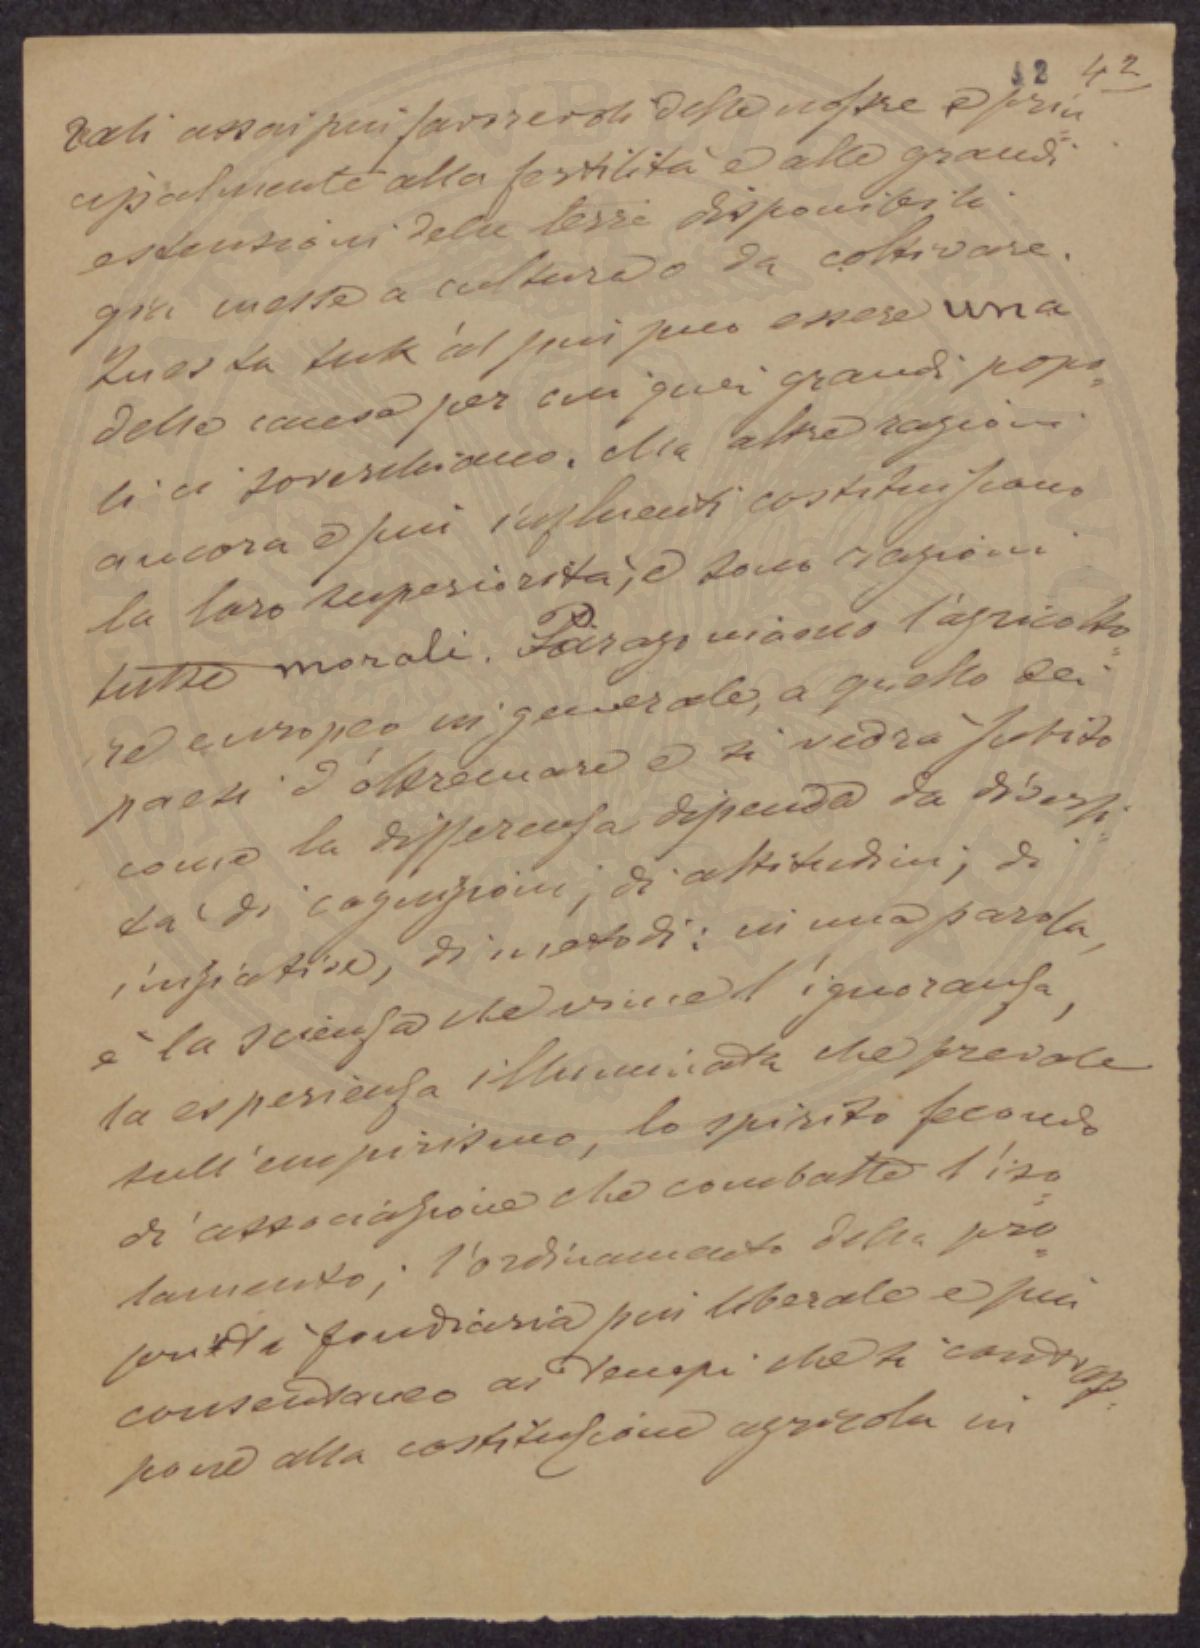 12 42
rali assai più favorevoli delle nostre e prin=
cipalmente alla fertilità e alle grandi
estensioni delle terre disponibili
già messe a cultura o da coltivare.
Questa al più può essere una
delle cause per cui quei grandi popo=
li ci soverchiano. Ma altre ragioni
ancora e più influenti costituiscono
la loro superiorità, e sono ragioni
tutte morali. Paragoniamo l'agricolto=
re europeo in generale, a quello dei
paesi d'oltremare e si vedrà subito
come la differenza dipende da diversi=
tà di cognizioni, di attitudini, di
iniziative, di metodi: in una parola,
è la scienza che vince l'ignoranza,
la esperienza illuminata che prevale
sull'empirismo, lo spirito fecondo
di associazione che combatte l'iso=
lamento; l'ordinamento della pro=
prietà fondiaria più liberale e più
consentaneo ai tempi che si contrap=
pone alla costituzione agricola in